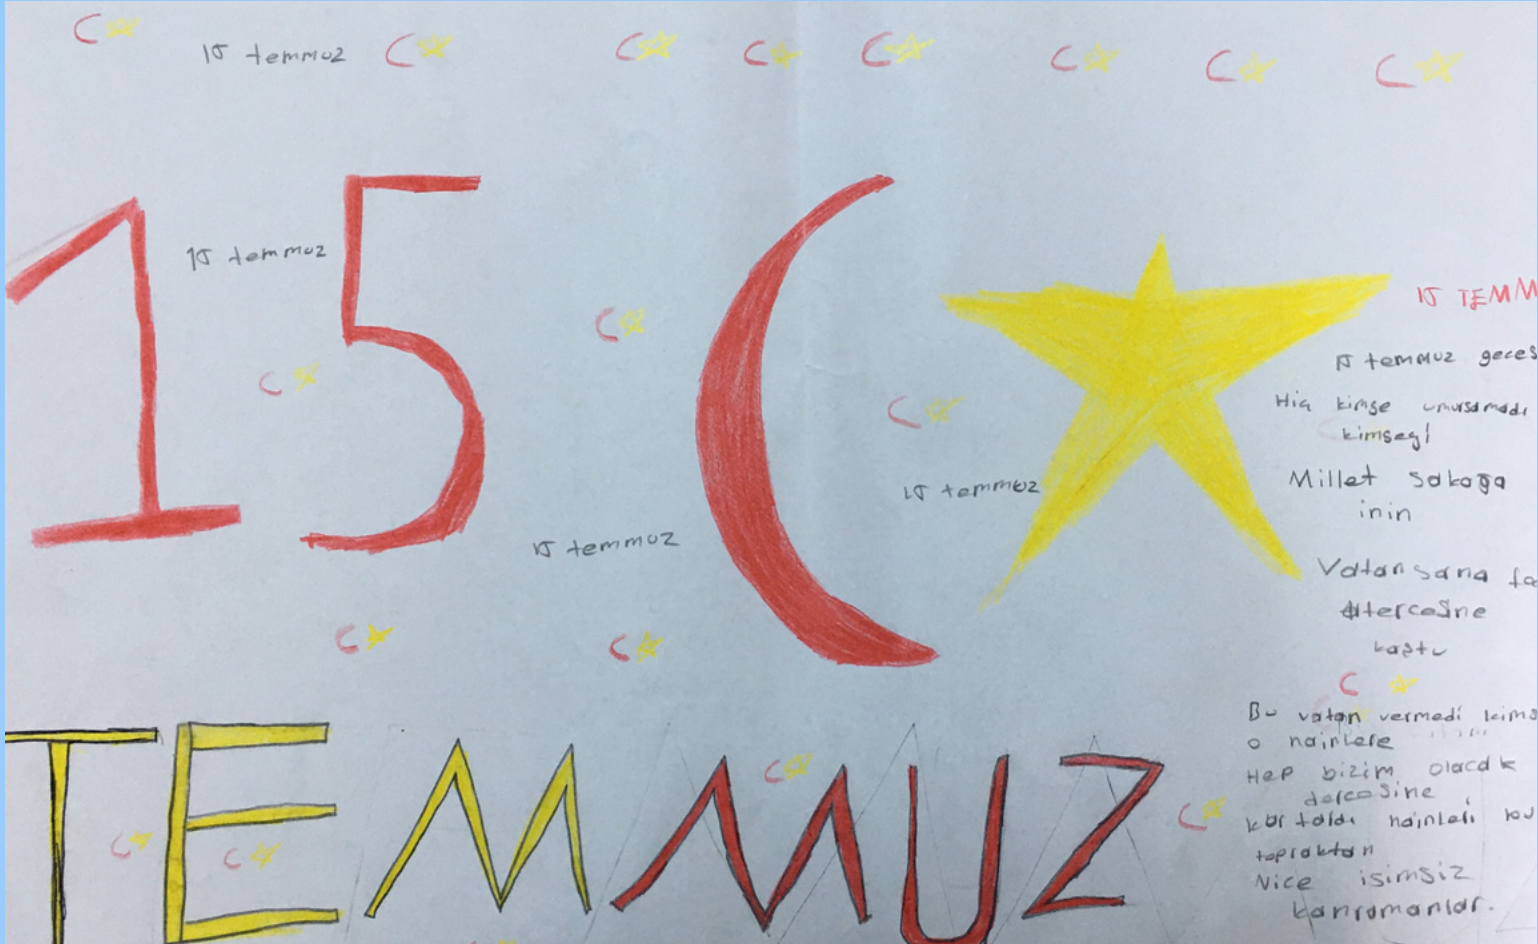 15 temmuz
15 temmuz
15
15 temmuz
15 temmuz
15 TEMM
15 temmuz geces
Hiç kimse umursamadı
kimseyi
Millet sokağa
inin
Vatan sana fe
dercesine
koştu
Bu vatan vermedi kims
o hainlere
Hep bizim olacak
dercesine
kurtaldı hainleri
topraktan
Nice isimsiz
kahramanlar.
TEMMUZ